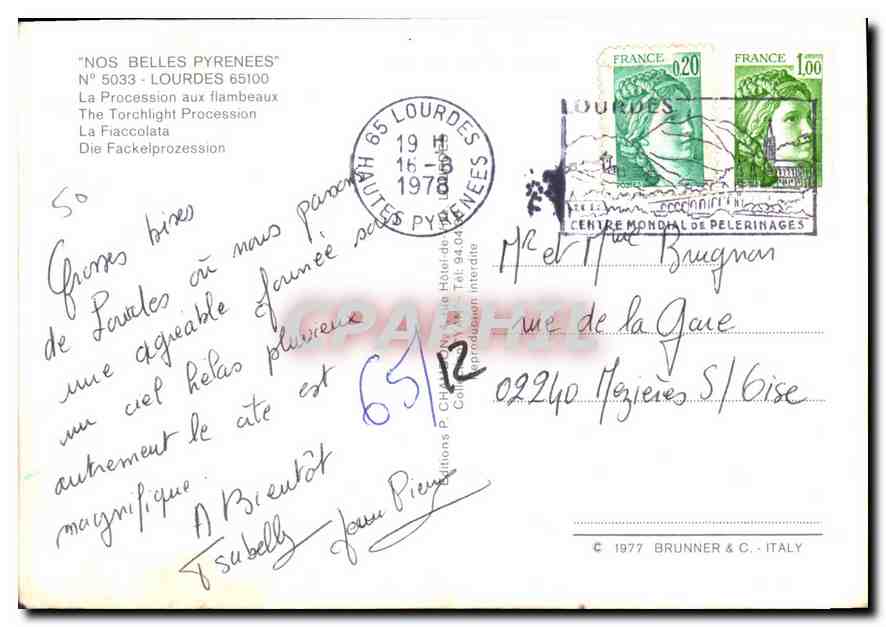 "NOS BELLES PYRENEES"
N° 5033 - LOURDES 65100
La Procession aux flambeaux
The Torchlight Procession
La Fiaccolata
Die Fackelprozession
50
Grosses bises
de Lourdes où nous passons
une agréable journée sous
un ciel hélas pluvieux
autrement le site est
magnifique.
A Bientôt
Isabelle Jean Pierre
65/12
65 LOURDES
19 H
16-8
1978
HAUTES PYRENEES
FRANCE 0,20
FRANCE 1,00
LOURDES
CENTRE MONDIAL DE PELERINAGES
Mr et Mme Brugnon
rue de la Gare
02240 Mezières S/Oise
Editions P. CHAUMON
Hôtel-de-
Tél: 94.04
reproduction interdite
CPAPHIL
© 1977 BRUNNER & C. - ITALY